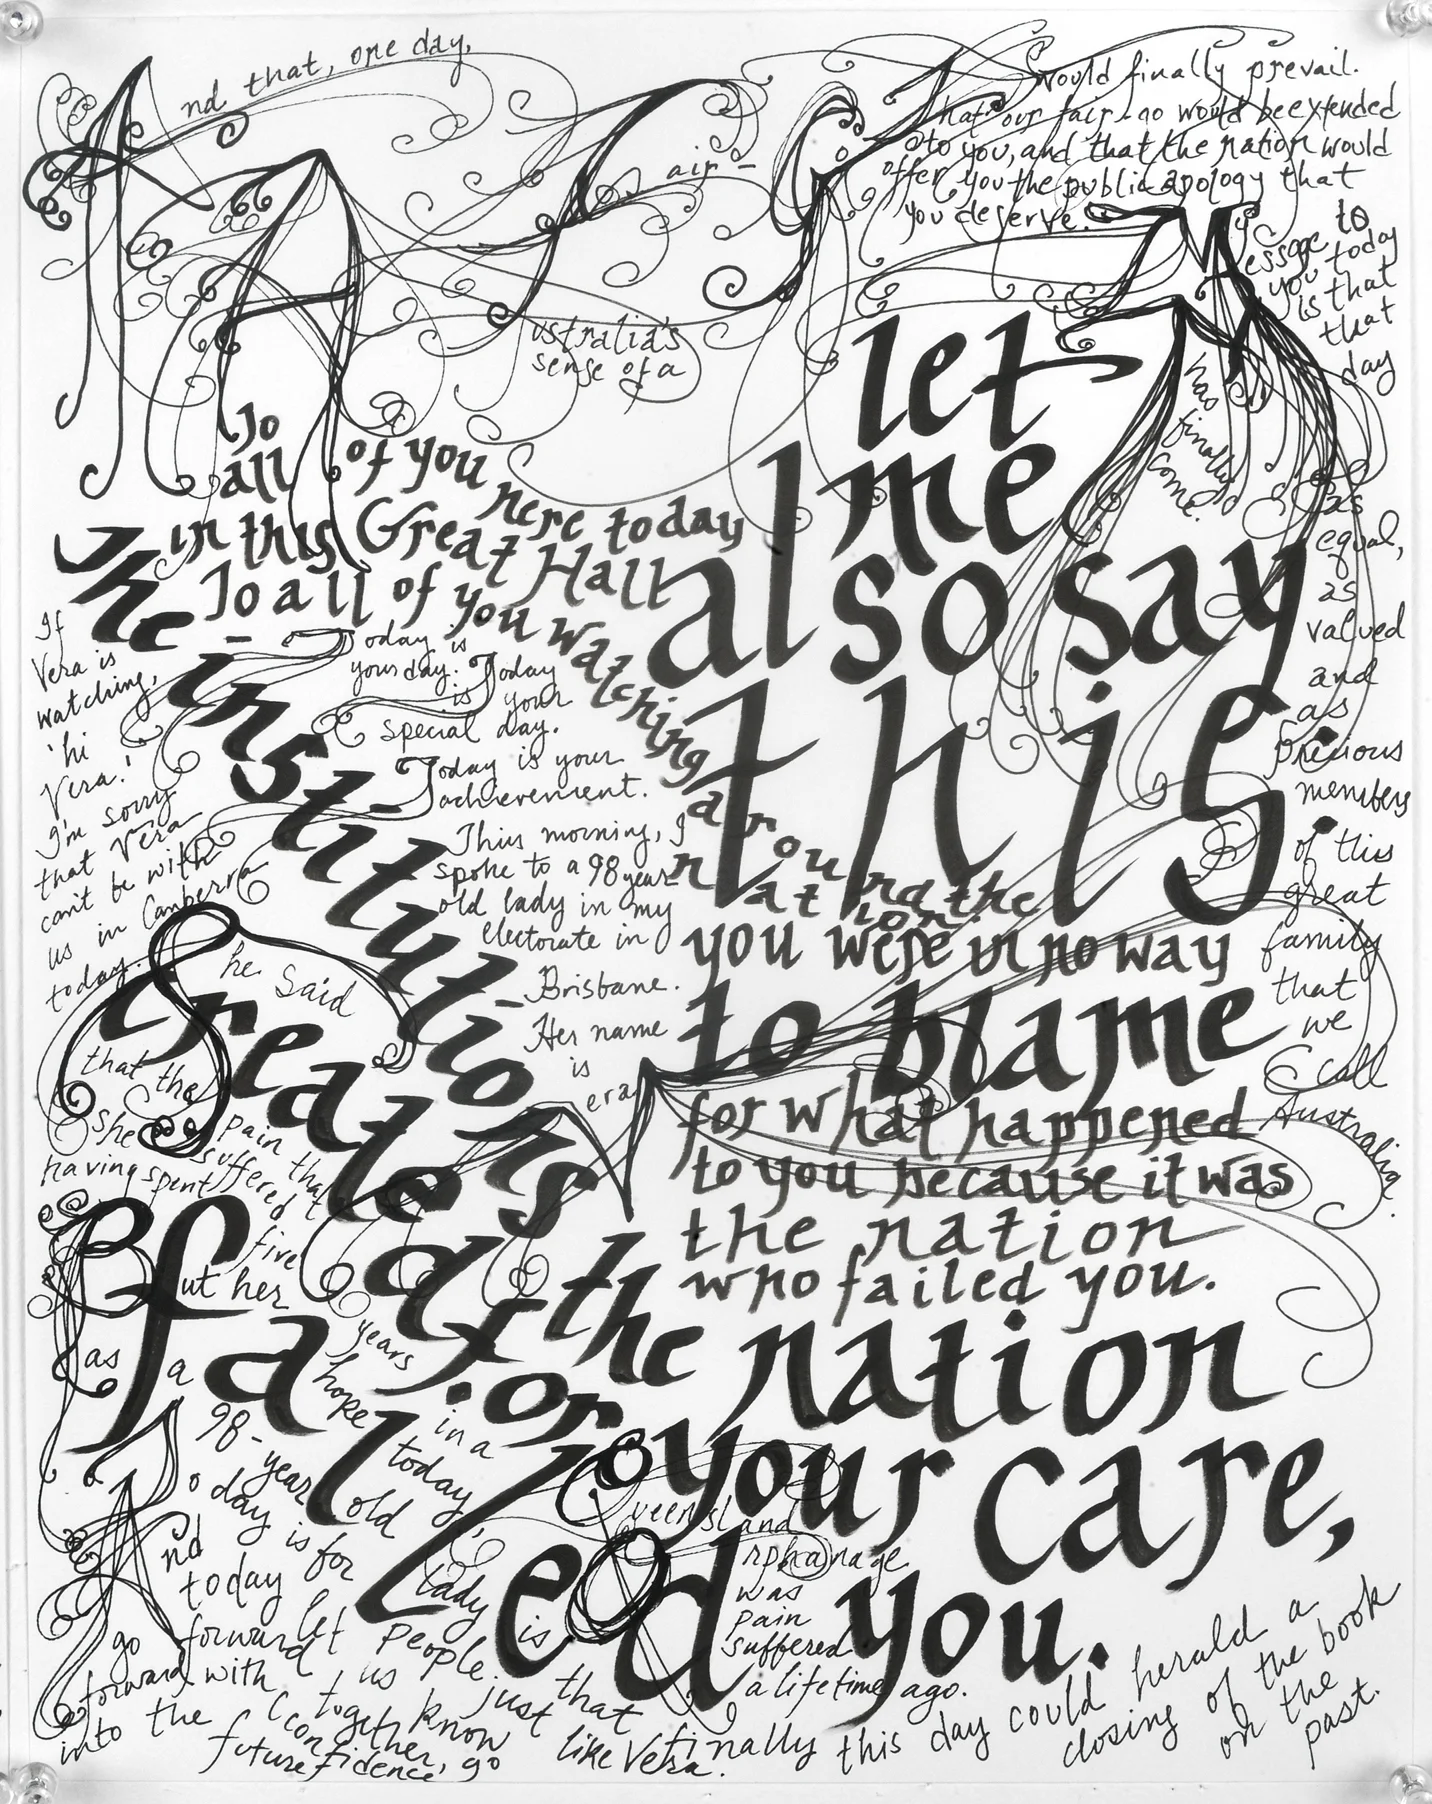 And that, one day,
Australia's
sense of a
Fair-
Go
would finally prevail.
That our fair-go would be extended
to you, and that the nation would
offer you the public apology that
you deserve.
My
essage to
you today
is that
that
day
has
finally
come.
As
equal,
as
valued
and
as
precious
members
of this
great
family
that
we
call
Australia.
let
me
also say
this
you were in no way
to blame
for what happened
to you because it was
the nation
who failed you.
To
all of you
here today
in this Great Hall
To all of you watching
around the
nation.
Today is
your day. Today
is your
special day.
Today is your
achievement.
This morning, I
spoke to a 98 year
old lady in my
electorate in
Brisbane.
Her name
is
Vera
If
Vera is
watching,
'hi
Vera!'
I'm sorry
that Vera
can't be with
us in Canberra
today.
She said
that the
pain that
she
suffered
having spent
five
years
in a
Queensland
Orphanage
was
pain
suffered
a lifetime ago.
But her
hope
today,
as a
98-year
old
lady is
that
finally this day could herald a
closing of the book
on the
past.
The
insti-
tuti-
ons
the nation
created for your care,
failed you.
And
today
let
us
go
forward
together,
go
forward with
confidence
into the
future
Today is for
people
just
like Vera.